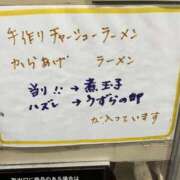 手作りチャーシューラーメン
からあげ ラーメン
当り!! → 煮玉子
ハズレ → うずらの卵
が入っています